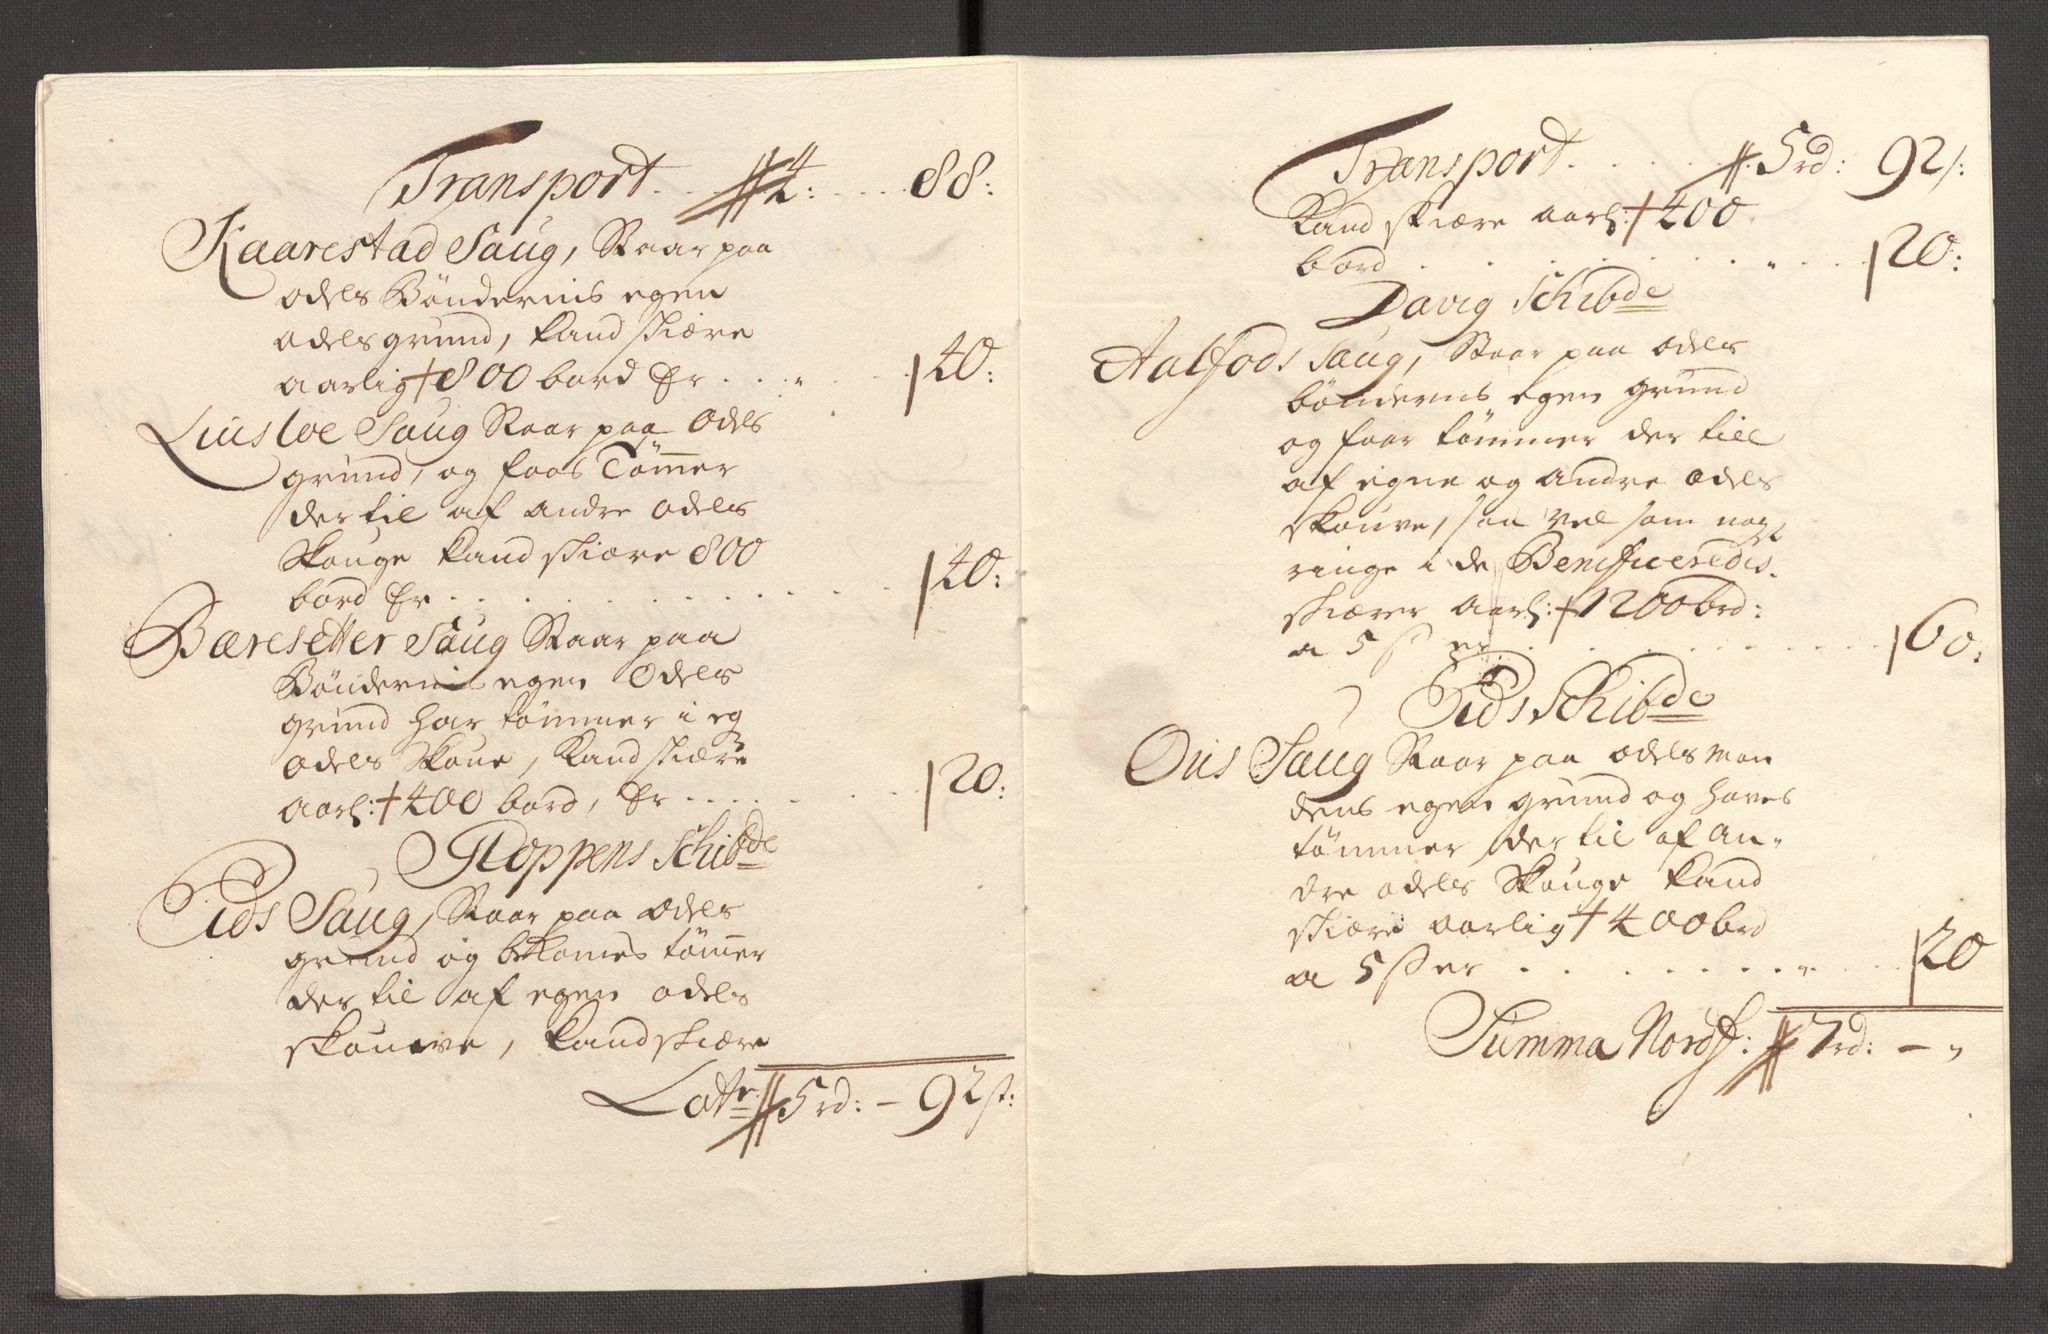 Transport . . # 4: . . . . 88:
Kaarestad Saug, Staar paa
odels Bøndernis egen
odelsgrund, kand skiære
aarlig + 800 bord Er . . . „ . . . 40:
Saug Staar paa Odels
grund, og faaes Tömer
der til af andre odels
Skouge kand skiære 800
bord Er . . . . . . . . . . 40:
Bæresetter Saug Staar paa
Bøndernis egen Odels
grund har tømmer i eg
odels Skoue, Kand skiære
aarl: + 400 bord, Er . . . . . . . 20:
Gloppens Schibde
Eids Saug, Staar paa odels
grund og bekomes tømer
der til af egen odels
skouwe, kand skiære
Late # 5 rd: – 92 s:
Transport . . . . . # 5 rd: 92 s:
Kand skiære aarl: + 400
bord . . . . . . . „ . . . 20:
Davig Schibde
Aalfods Saug, Staar paa odels
bønderns egen grund
og faar tømmer der till
af egne og andre odels
skouve, saa vel som nog
ringe i de Beneficeredis.
skiærer aarl: + 1200 brd:
a 5 s er . . . . . . . . . . 60:
Eids Schibde
Ous Saug Staar paa odelsman
dens egen grund og haves
tømmer der til af an„
dre odels Skouge kand
skiære aarlig + 400 brd
a 5 s er . . . . . . . „ . . . 20
Summa Nordf: # 7 rd: – „